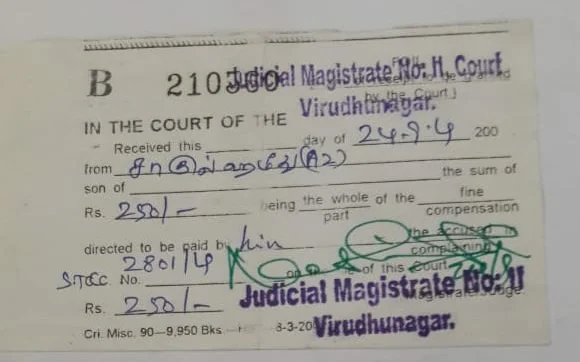 B 210350 Judicial Magistrate No: II, Court
(Form of receipt to be granted
by the Court)
Virudhunagar.
IN THE COURT OF THE
Received this day of 24.9.4 200
from சாகுல் ஹமீது (A2)
son of the sum of
Rs. 250/- being the whole of the fine
part compensation
directed to be paid by him the accused in
STCC No. 2801/4 complaining
of this Court
Rs. 250/- Judicial Magistrate No: II
Magistrate/Judge.
Cri. Misc. 90—9,950 Bks 8-3-20 Virudhunagar.